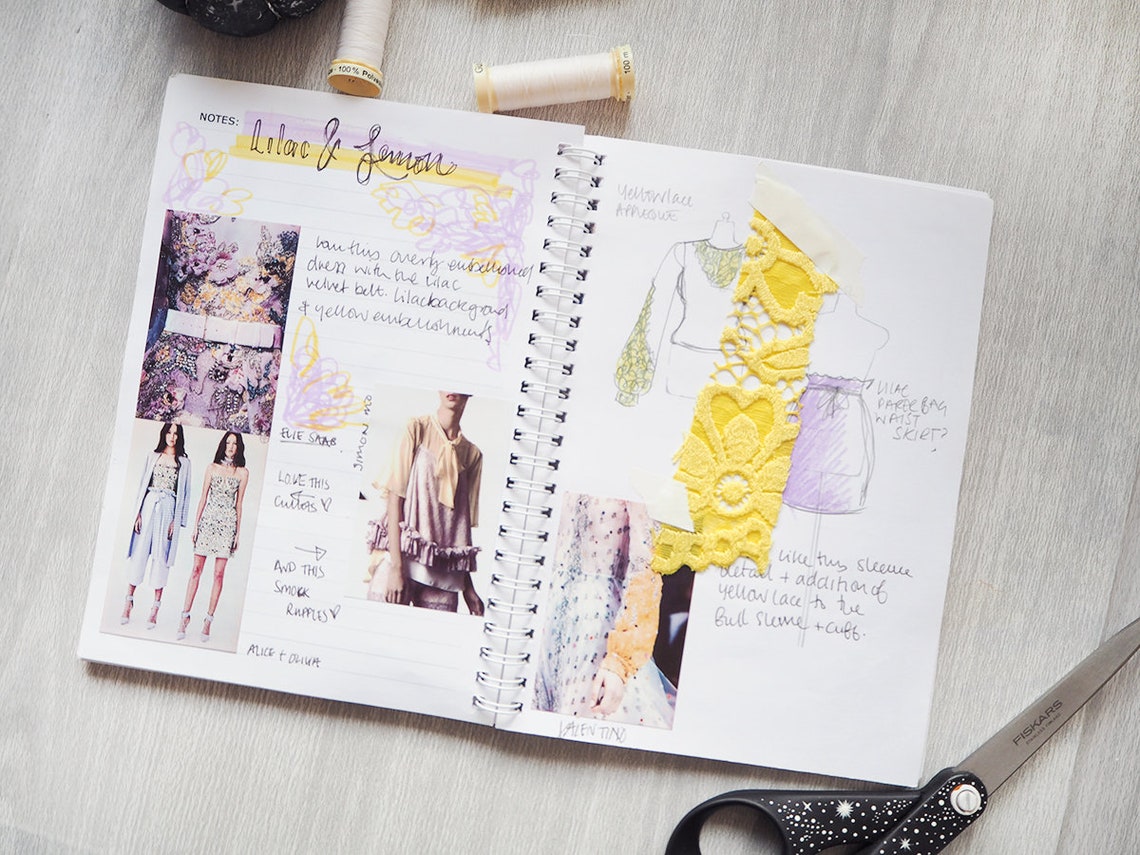 100% Poly
100 m
NOTES:
Lilac & Lemon
Love this overly embellished
dress with the lilac
velvet belt. lilac background
& yellow embellishments
ELIE SAAB.
SIMON
LOVE THIS
Culottes
AND THIS
SMOCK
RUFFLES
ALICE + OLIVIA
Yellow lace
APPLIQUE
LILAC
PAPER BAG
WAIST
SKIRT?
Like this sleeve
detail + addition of
yellow lace to the
Bull sleeve + cuff.
VALENTINO
FISKARS